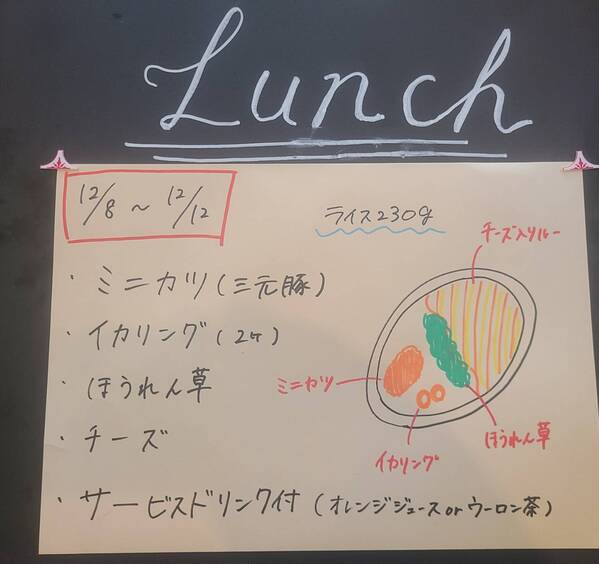 Lunch
12/8 ～ 12/12
ライス230g
チーズ入りルー
・ミニカツ(三元豚)
・イカリング(2ケ)
・ほうれん草
・チーズ
ミニカツ
イカリング
ほうれん草
・サービスドリンク付(オレンジジュースorウーロン茶)